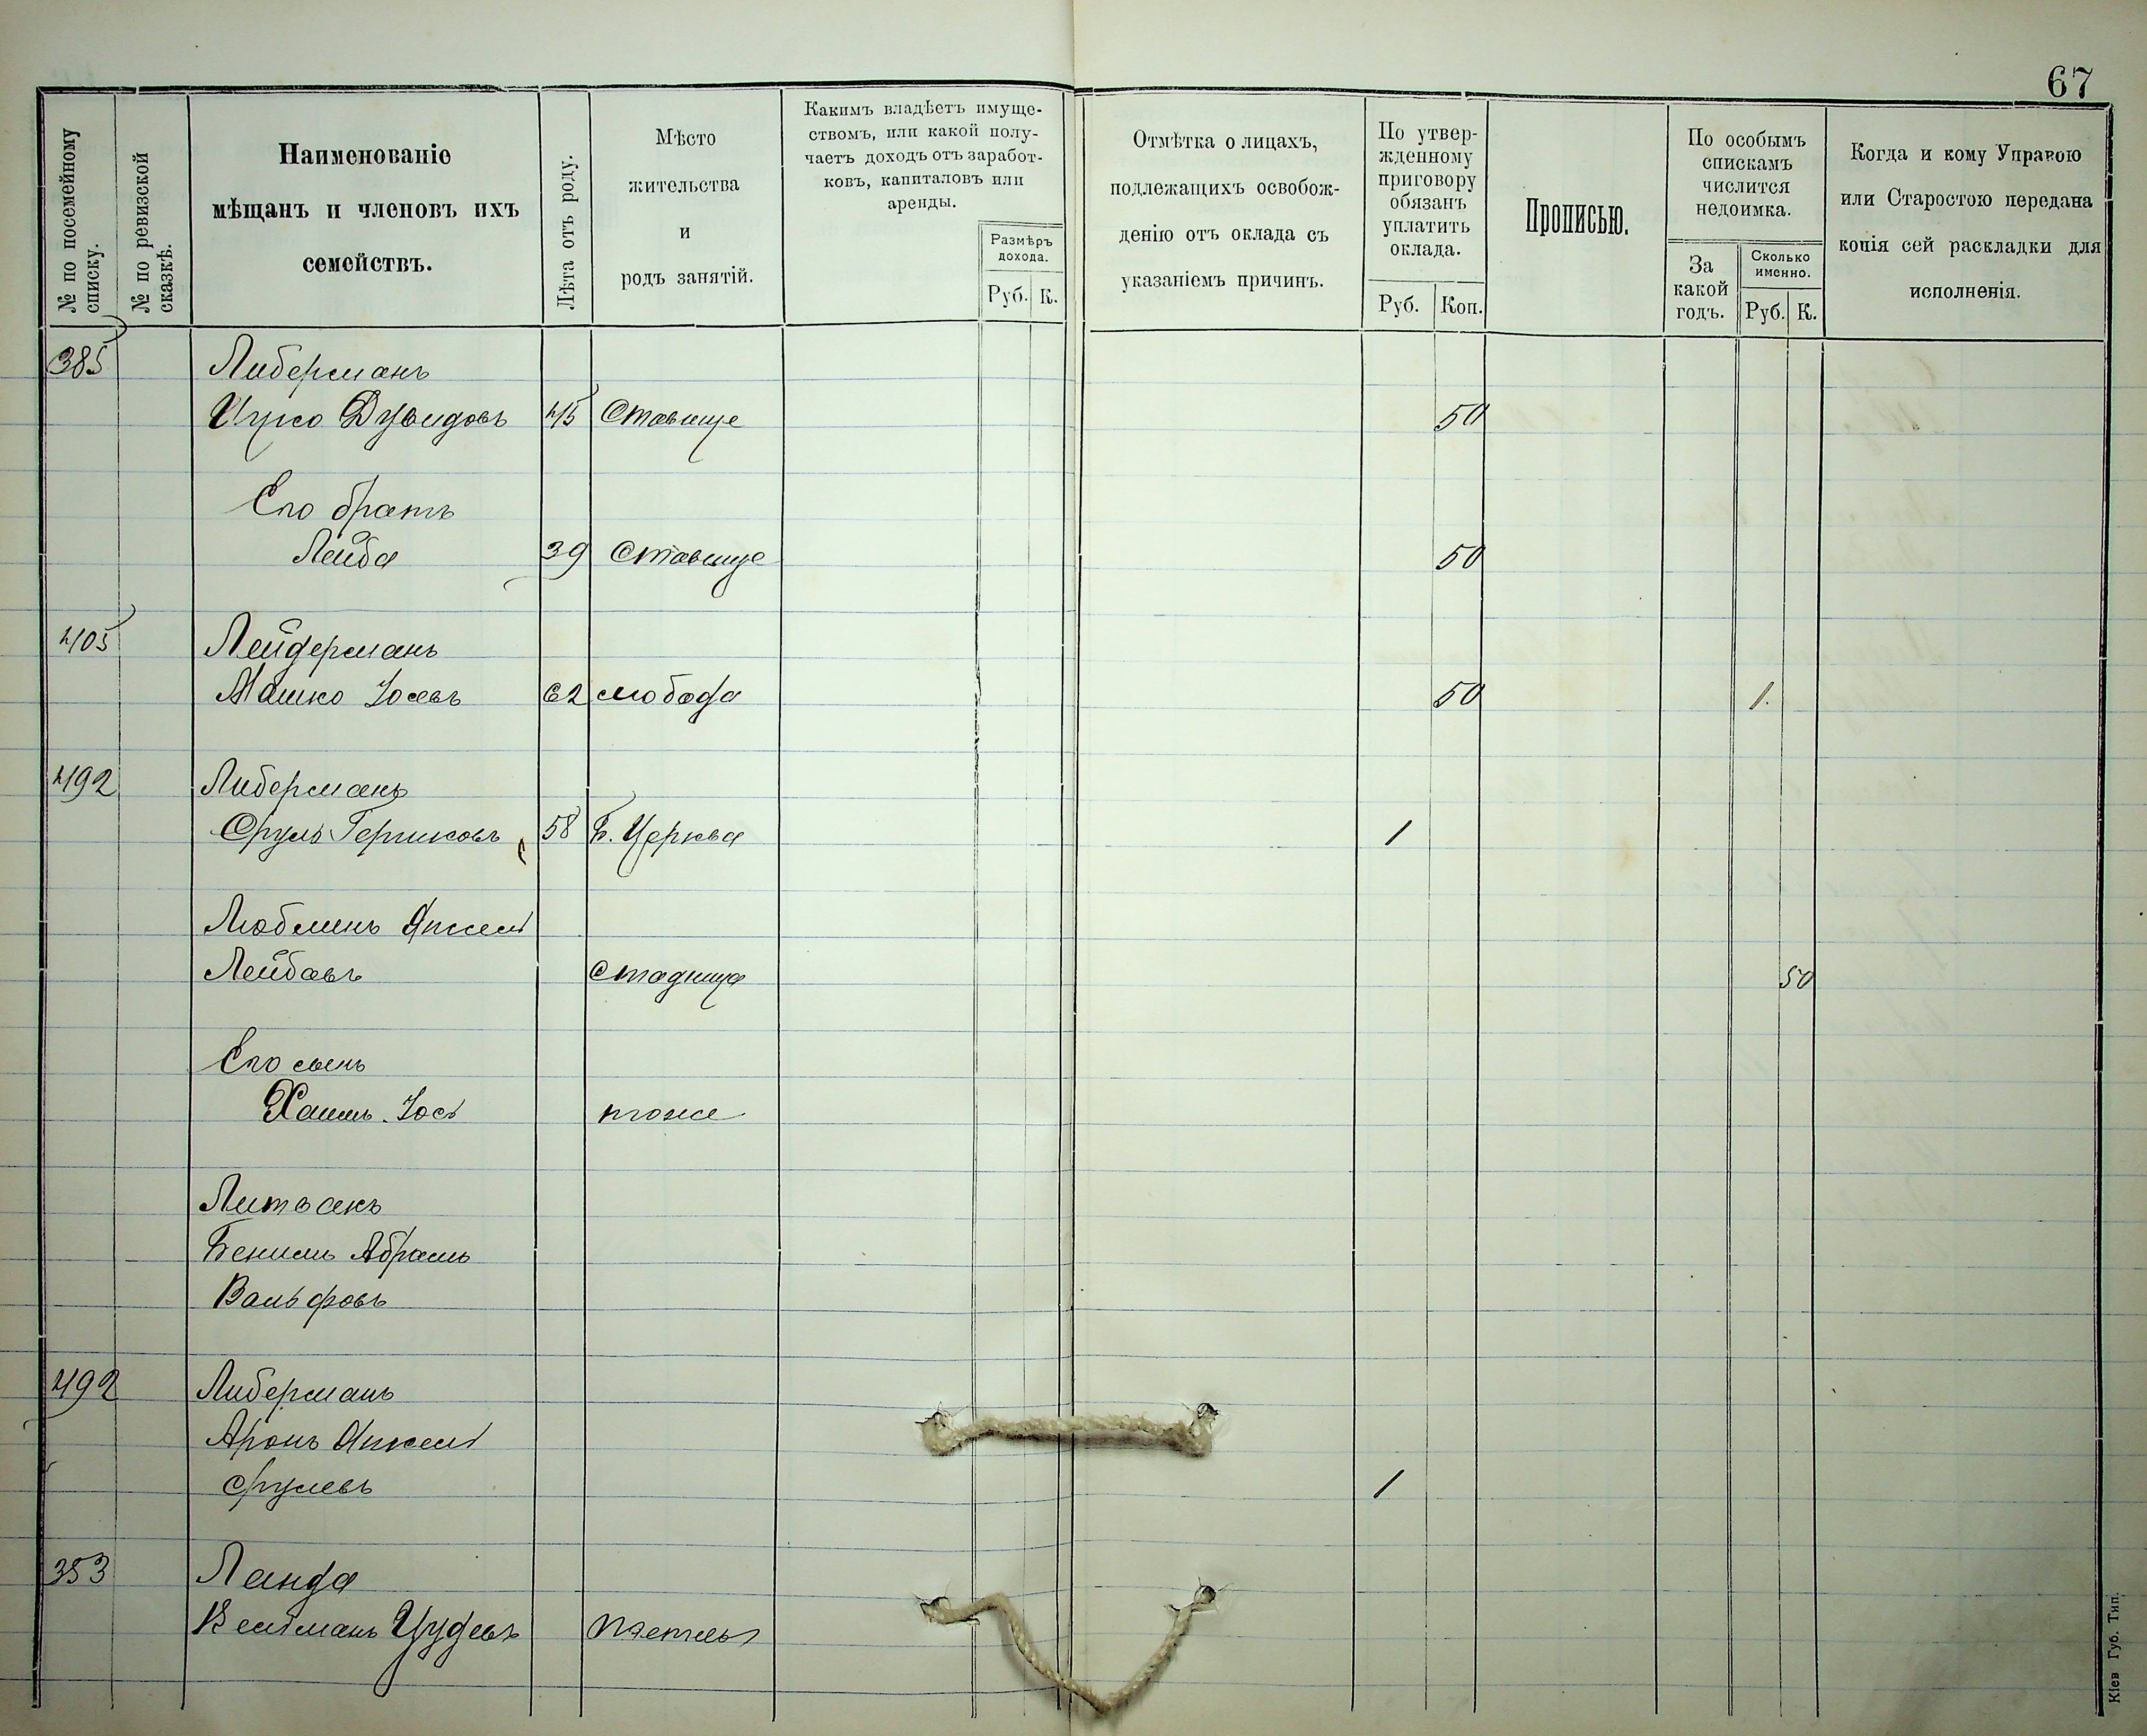 67
№ по посемейному списку.
№ по ревизской сказкѣ.
Наименованіе
мѣщанъ и членовъ ихъ
семействъ.
Лѣта отъ роду.
Мѣсто
жительства
и
родъ занятій.
Какимъ владѣетъ имуще-
ствомъ, или какой полу-
чаетъ доходъ отъ заработ-
ковъ, капиталовъ или
аренды.
Размѣръ
дохода.
Руб. К.
Отмѣтка о лицахъ,
подлежащихъ освобож-
денію отъ оклада съ
указаніемъ причинъ.
По утвер-
жденному
приговору
обязанъ
уплатить
оклада.
Руб. Коп.
Прописью.
По особымъ
спискамъ
числится
недоимка.
За
какой
годъ.
Сколько
именно.
Руб. К.
Когда и кому Управою
или Старостою передана
копія сей раскладки для
исполненія.
385 Либерманъ
Ицко Дувидовъ 45 Ставище 50
Его братъ
Лейба 39 Ставище 50
405 Лейдерманъ
Машко Іосевъ 62 слобода 50 1.
492 Либерманъ
Сруль Гершковъ 58 Б. Церква 1
Люблинъ Янкель
Лейбовъ 50
Его сынъ
Хаимъ Іось тоже
Литвакъ
Бениамъ Абрамъ
Вольфовъ
492 Либерманъ
Аронъ Янкель
Срулевъ 1
353 Ланда
Вельманъ Іудевъ
Кіев Губ. Тип.